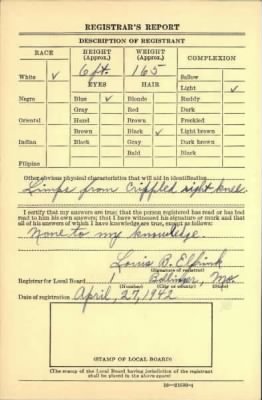 REGISTRAR'S REPORT
DESCRIPTION OF REGISTRANT
RACE HEIGHT (Approx.) WEIGHT (Approx.) COMPLEXION
White ✓ 6 ft. 165 Sallow
EYES HAIR Light ✓
Negro Blue ✓ Blonde Ruddy
Gray Red Dark
Oriental Hazel Brown Freckled
Brown Black ✓ Light brown
Indian Black Gray Dark brown
Bald Black
Filipino
Other obvious physical characteristics that will aid in identification
Limps from crippled right knee.
I certify that my answers are true; that the person registered has read or has had
read to him his own answers; that I have witnessed his signature or mark and that
all of his answers of which I have knowledge are true, except as follows:
None to my knowledge.
Louis B. Elfrink
(Signature of registrar)
Registrar for Local Board 1 Bollinger, Mo.
(Number) (City or county) (State)
Date of registration April, 27, 1942
(STAMP OF LOCAL BOARD)
(The stamp of the Local Board having jurisdiction of the registrant
shall be placed in the above space)